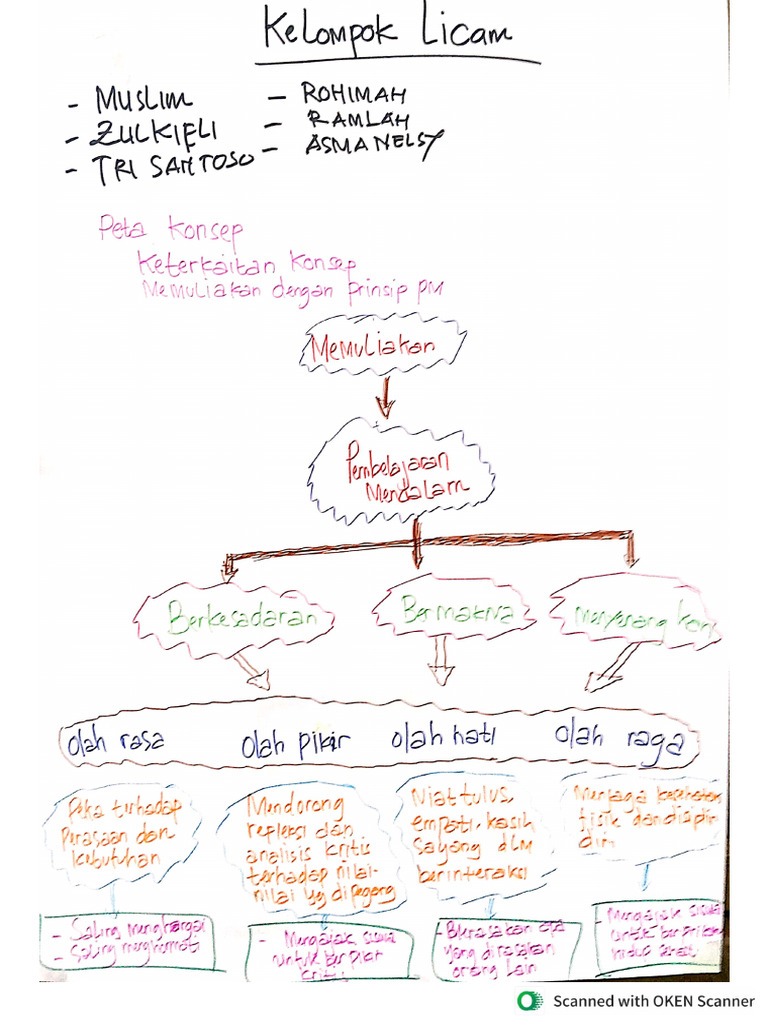 Kelompok Licam
- MUSLIM
- ZULKIFLI
- TRI SANTOSO
- ROHIMAH
- RAMLAH
- ASMANELSY
Peta Konsep
Keterkaitan Konsep
Memuliakan dengan prinsip PM
Memuliakan
Pembelajaran
Mendalam
Berkesadaran
Bermakna
Menyenangkan
Olah rasa
Olah pikir
Olah hati
Olah raga
Peka terhadap
Perasaan dan
kebutuhan
Mendorong
refleksi dan
analisis kritis
terhadap nilai-
nilai yg dipegang
Niat tulus,
empati, kasih
sayang dlm
berinteraksi
Menjaga kesehatan
fisik dan disiplin
diri
- Saling menghargai
- Saling menghormati
- Mengajak siswa
untuk berpikir
kritis
- apa
yang dirasakan
orang lain
- Mengajak siswa
untuk
hidup sehat
Scanned with OKEN Scanner